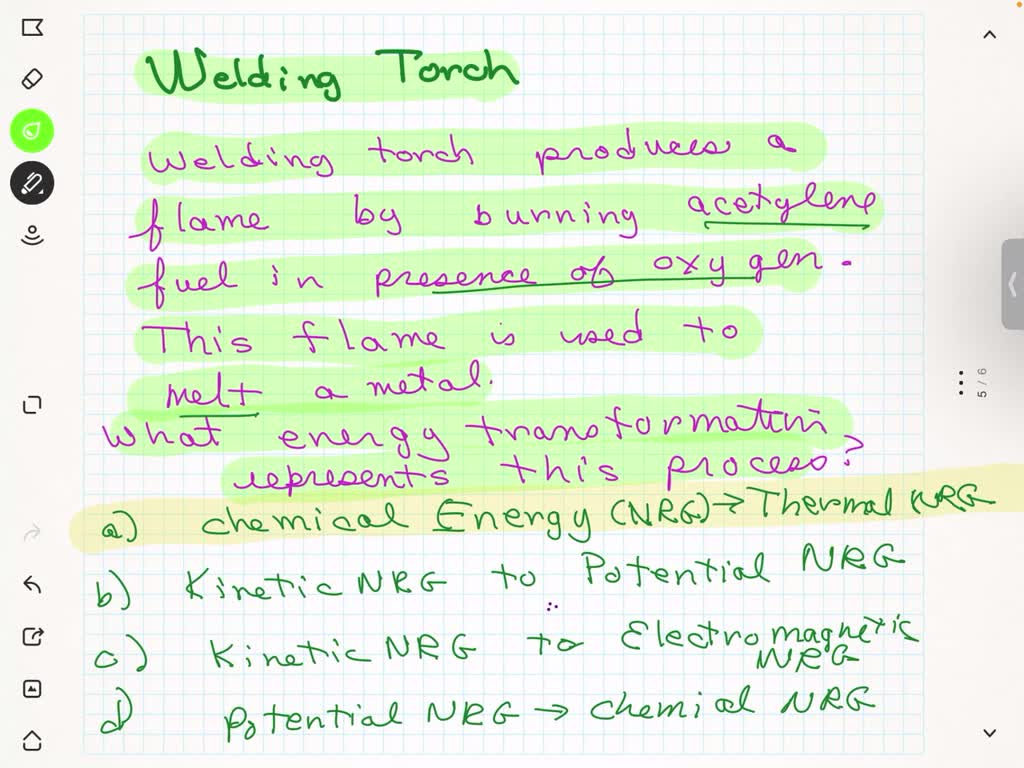 Welding Torch
Welding torch produces a
flame by burning acetylene
fuel in presence of oxygen.
This flame is used to
melt a metal.
What energy transformation
represents this process?
a) Chemical Energy (NRG) → Thermal NRG
b) Kinetic NRG to Potential NRG
c) Kinetic NRG to Electromagnetic
NRG
d) Potential NRG → Chemial NRG
5 / 6